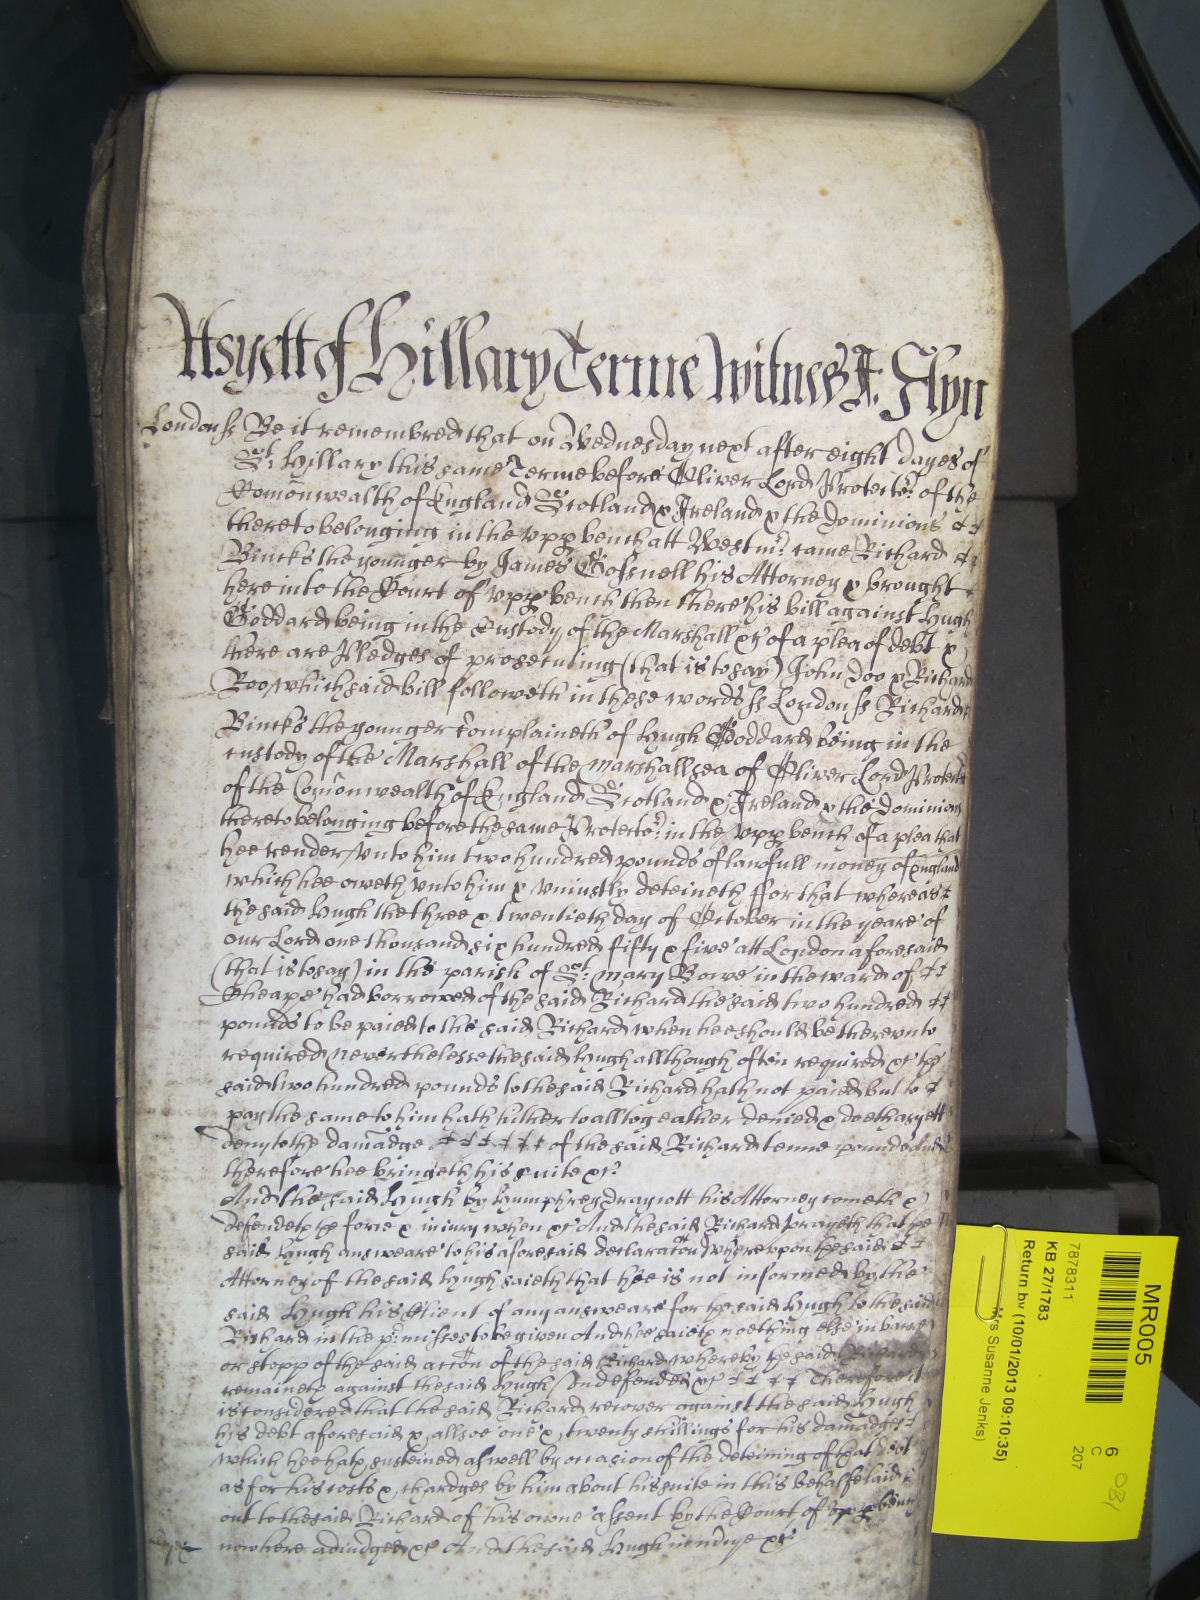 As yett of Hillary Terme Witnes J: Glyn
London ss Be it remembred that on Wednesday next after eight dayes of
St. Hillary this same Terme before Oliver Lord Protector of the
Comonwealth of England Scotland & Ireland & the dominions
thereto belonging in the upp bench att Westmr. came Richard
Bincks the younger by James Gossnell his Attorney & brought
here into the Court of upp bench then there his bill against Hugh
Goddard being in the Custody of the Marshall &c of a plea of debt &
there are Pledges of prosecuting (that is to say) John Doo & Richard
Roo, which said bill followeth in these words ss London ss Richard
Bincks the younger Complaineth of Hugh Goddard being in the
custody of the Marshall of the Marshallsea of Oliver Lord Protector
of the Comonwealth of England Scotland & Ireland & the dominions
thereto belonging before the same Protector in the upp bench of a plea that
hee render unto him two hundred pounds of lawfull money of England
which hee oweth unto him & uniustly deteineth ffor that whereas
the said Hugh the three & twentieth day of October in the yeare of
our Lord one thousand six hundred fifty & five att London aforesaid
(that is to say) in the parish of St. Mary Bowe in the ward of
Cheape had borrowed of the said Richard the said two hundred
pounds to be paied to the said Richard when hee should be thereunto
required, neverthelesse the said Hugh allthough often required &c the
said two hundred pounds to the said Richard hath not paied but to
pay the same to him hath hitherto alltogeather denied & doeth as yett
deny to the damadge of the said Richard tenne pounds And
therefore hee bringeth his suite &c.
And the said Hugh by Humphrey draycott his Attorney cometh &
defendeth the force & iniury when &c And the said Richard prayeth that the
said Hugh answeare to his aforesaid declaracon whereupon the said
Attorney of the said Hugh saieth that hee is not informed by the
said Hugh his Client of any answeare for the said Hugh to the said
Richard in the pr.misses to be given And hee saieth noething else in barre
or stopp of the said accon of the said Richard whereby the said Richard
remaineth against the said Hugh undefended &c Therefore it
is considered that the said Richard recover against the said Hugh
his debt aforesaid & allsoe one & twenty shillings for his damadges
which hee hath susteined as well by occasion of the deteining of that debt
as for his costs & chardges by him about his suite in this behalfe laid
out to the said Richard of his owne assent by the Court of upp bench
now here adiudged &c And the said Hugh in mercye &c.
MR005
6
C
207
7878311
KB 27/1783
Return by (10/01/2013 09:10:35)
Mrs Susanne Jenks)